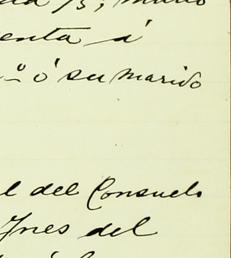 15, mano
enta á
º ó su marido
l del Consuelo
Ynes del